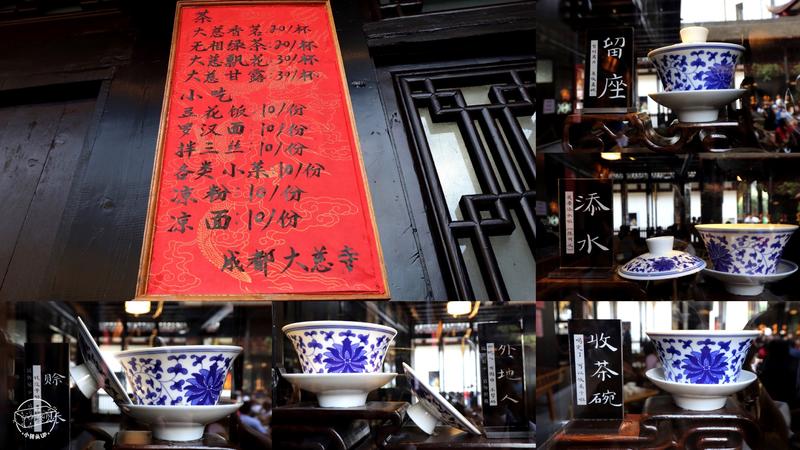 茶
大慈香茗:20/杯
无相绿茶:20/杯
大慈飘花:30/杯
大慈甘露:30/杯
小吃
豆花饭:10/份
罗汉面:10/份
拌三丝:10/份
各类小菜10/份
凉粉:10/份
凉面:10/份
成都大慈寺
留座
添水
赊
外地人
收茶碗